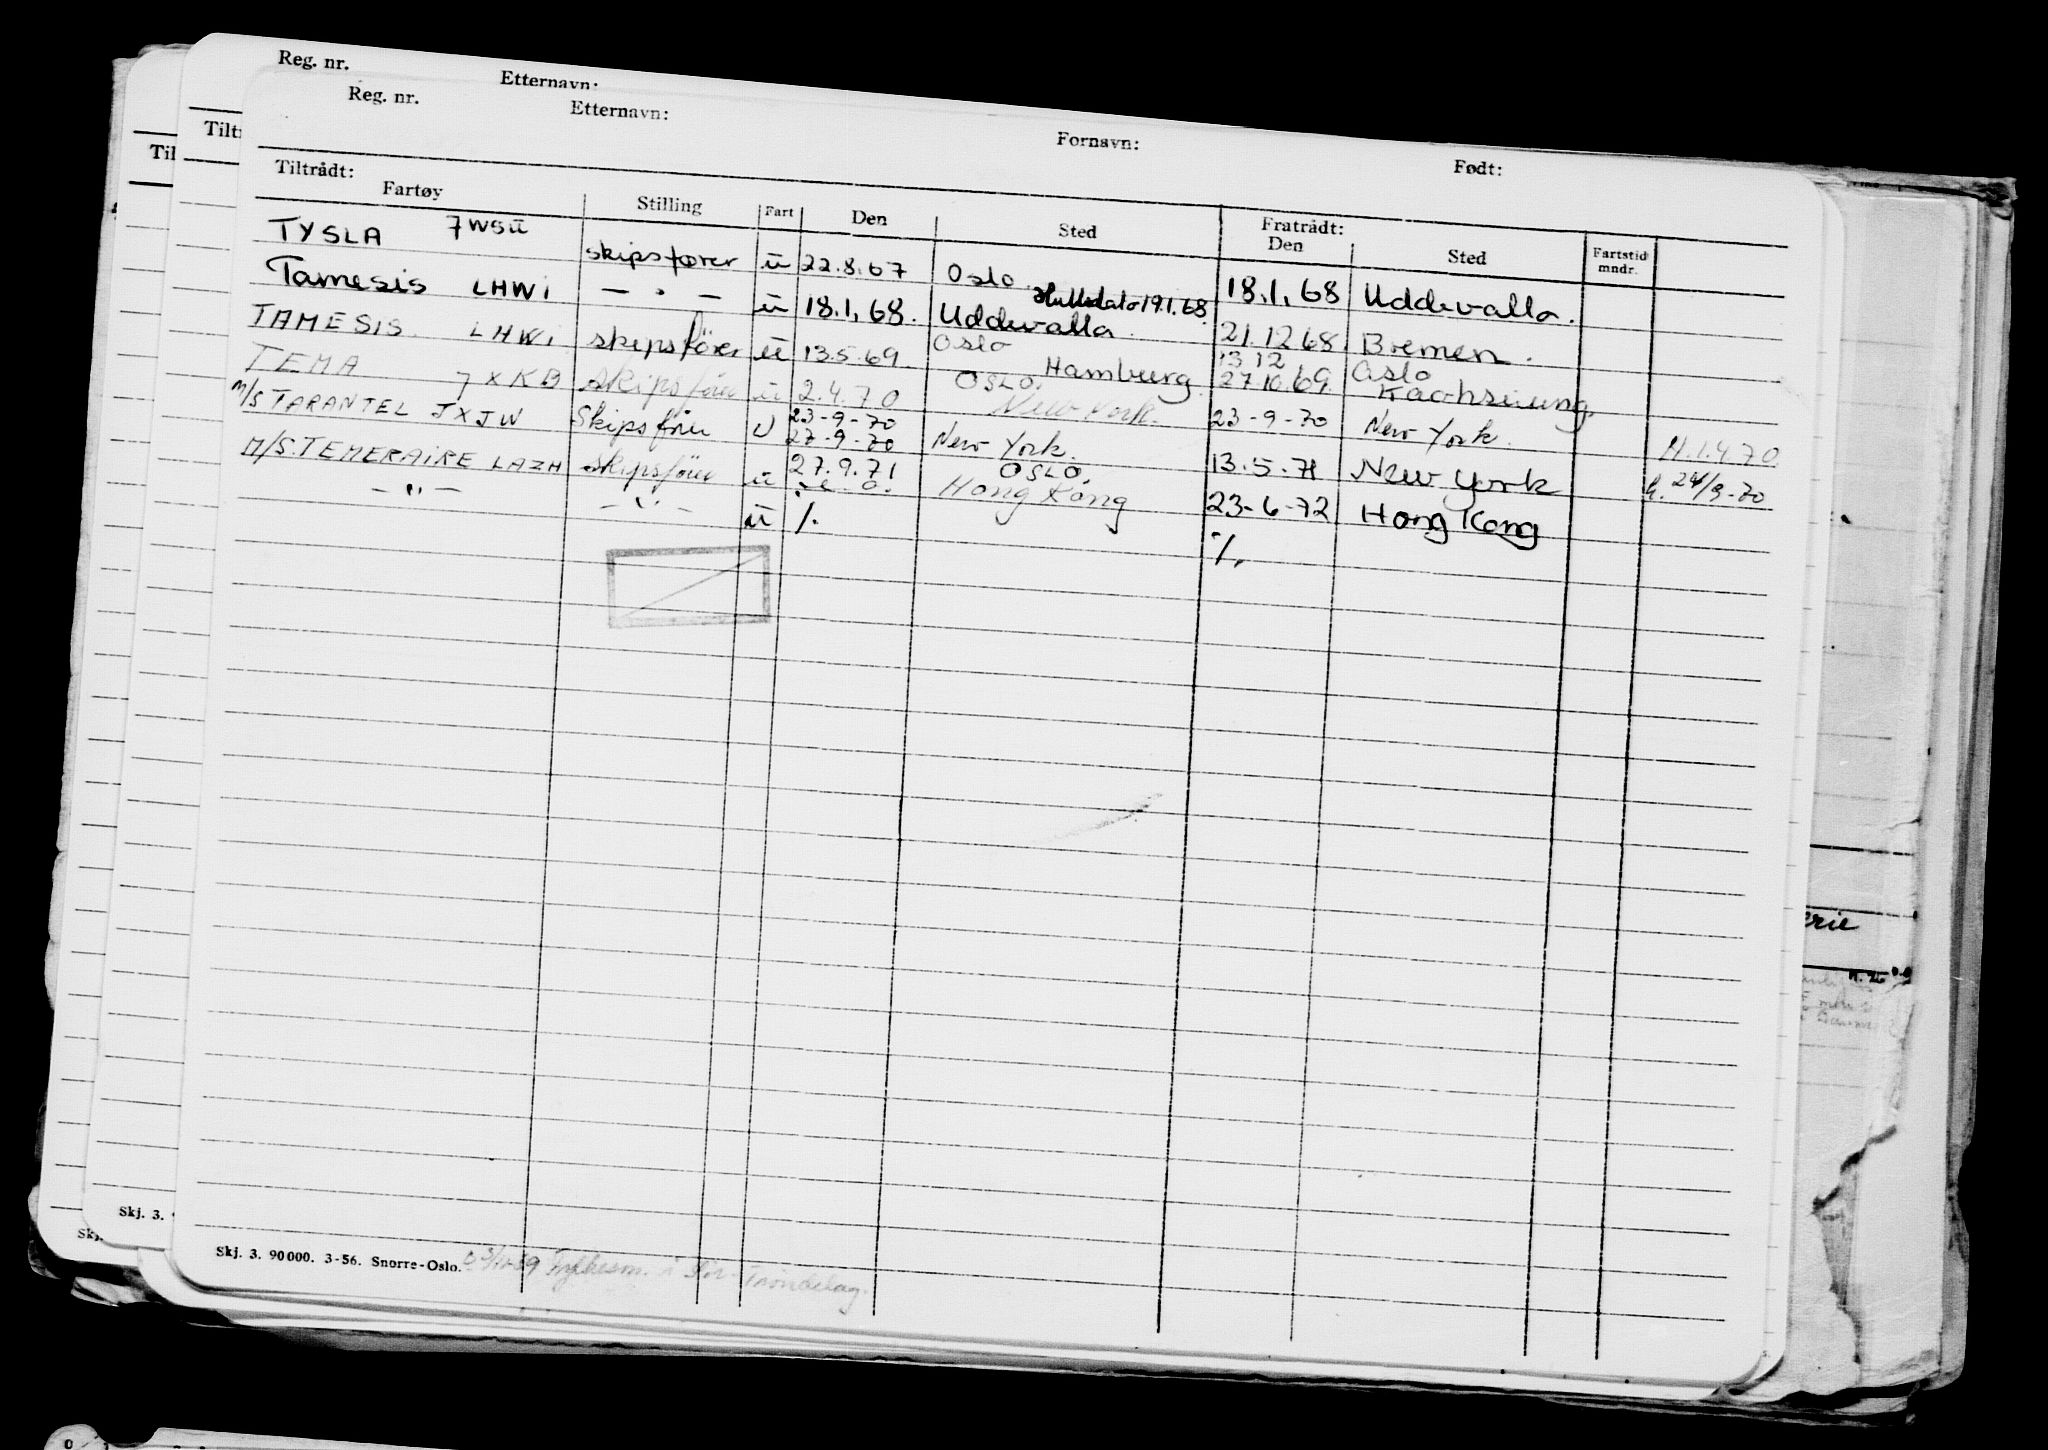 Reg. nr. Etternavn:
Reg. nr. Etternavn: Fornavn: Født:
Tiltrådt: Fratrådt:
Fartøy Stilling Fart Den Sted Den Sted Fartstid mndr.
TYSLA 7WSU skipsfører u 22.8.67 Oslo 18.1.68 Uddevalla.
Tamesis LHWI — " — u 18.1.68. Uddevalla. 19.1.68 21.12.68. Bremen.
TAMESIS. LHWI skipsfören u 13.5.69. Oslo Hamburg 13.12 27.10.69. Oslo
TEMA 7XKB skipsfören u 2.4.70 OSLO. New York. 23-9-70 New York. H.1.4.70.
M/S TARANTEL JXJW Skipsförer U 23-9-70 27-9-70 New York. 13.5.71 New York h. 24/9-70
M/S. TEMERAIRE LAZH skipsförer u 27.9.71 OSLO. Hong Kong 23-6-72 Hong Kong
— " — — " — u %. %.
Skj. 3. 90000. 3-56. Snorre-Oslo. i Sør-Trøndelag.
Tilt
Til
Skj. 3.
Skj.
erie